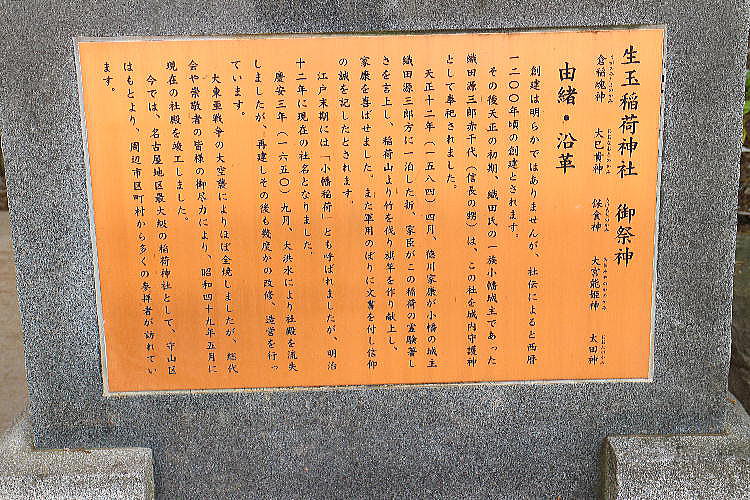 生玉稲荷神社　御祭神
倉稲魂神　大己貴神　保食神　大宮能姫神　太田神
由緒・沿革
創建は明らかではありませんが、社伝によると西暦
一二〇〇年頃の創建とされます。
その後天正の初期、織田氏の一族小幡城主であった
織田源三郎赤千代（信長の甥）は、この社を城内守護神
として奉祀されました。
天正十二年（一五八四）四月、徳川家康が小幡の城主
織田源三郎方に一泊した折、家臣がこの稲荷の霊験著し
さを言上し、稲荷山より竹を伐り旗竿を作り献上し、
家康を喜ばせました。また軍用のぼりに文字を付し信仰
の誠を記したとされます。
江戸末期には「小幡稲荷」とも呼ばれましたが、明治
十二年に現在の社名となりました。
慶安三年（一六五〇）九月、大洪水により社殿を流失
しましたが、再建しその後も幾度かの改修、造営を行っ
ています。
大東亜戦争の大空襲によりほぼ全焼しましたが、総代
会や崇敬者の皆様の御尽力により、昭和四十九年五月に
現在の社殿を竣工しました。
今では、名古屋地区最大級の稲荷神社として、守山区
はもとより、周辺市区町村から多くの参拝者が訪れてい
ます。